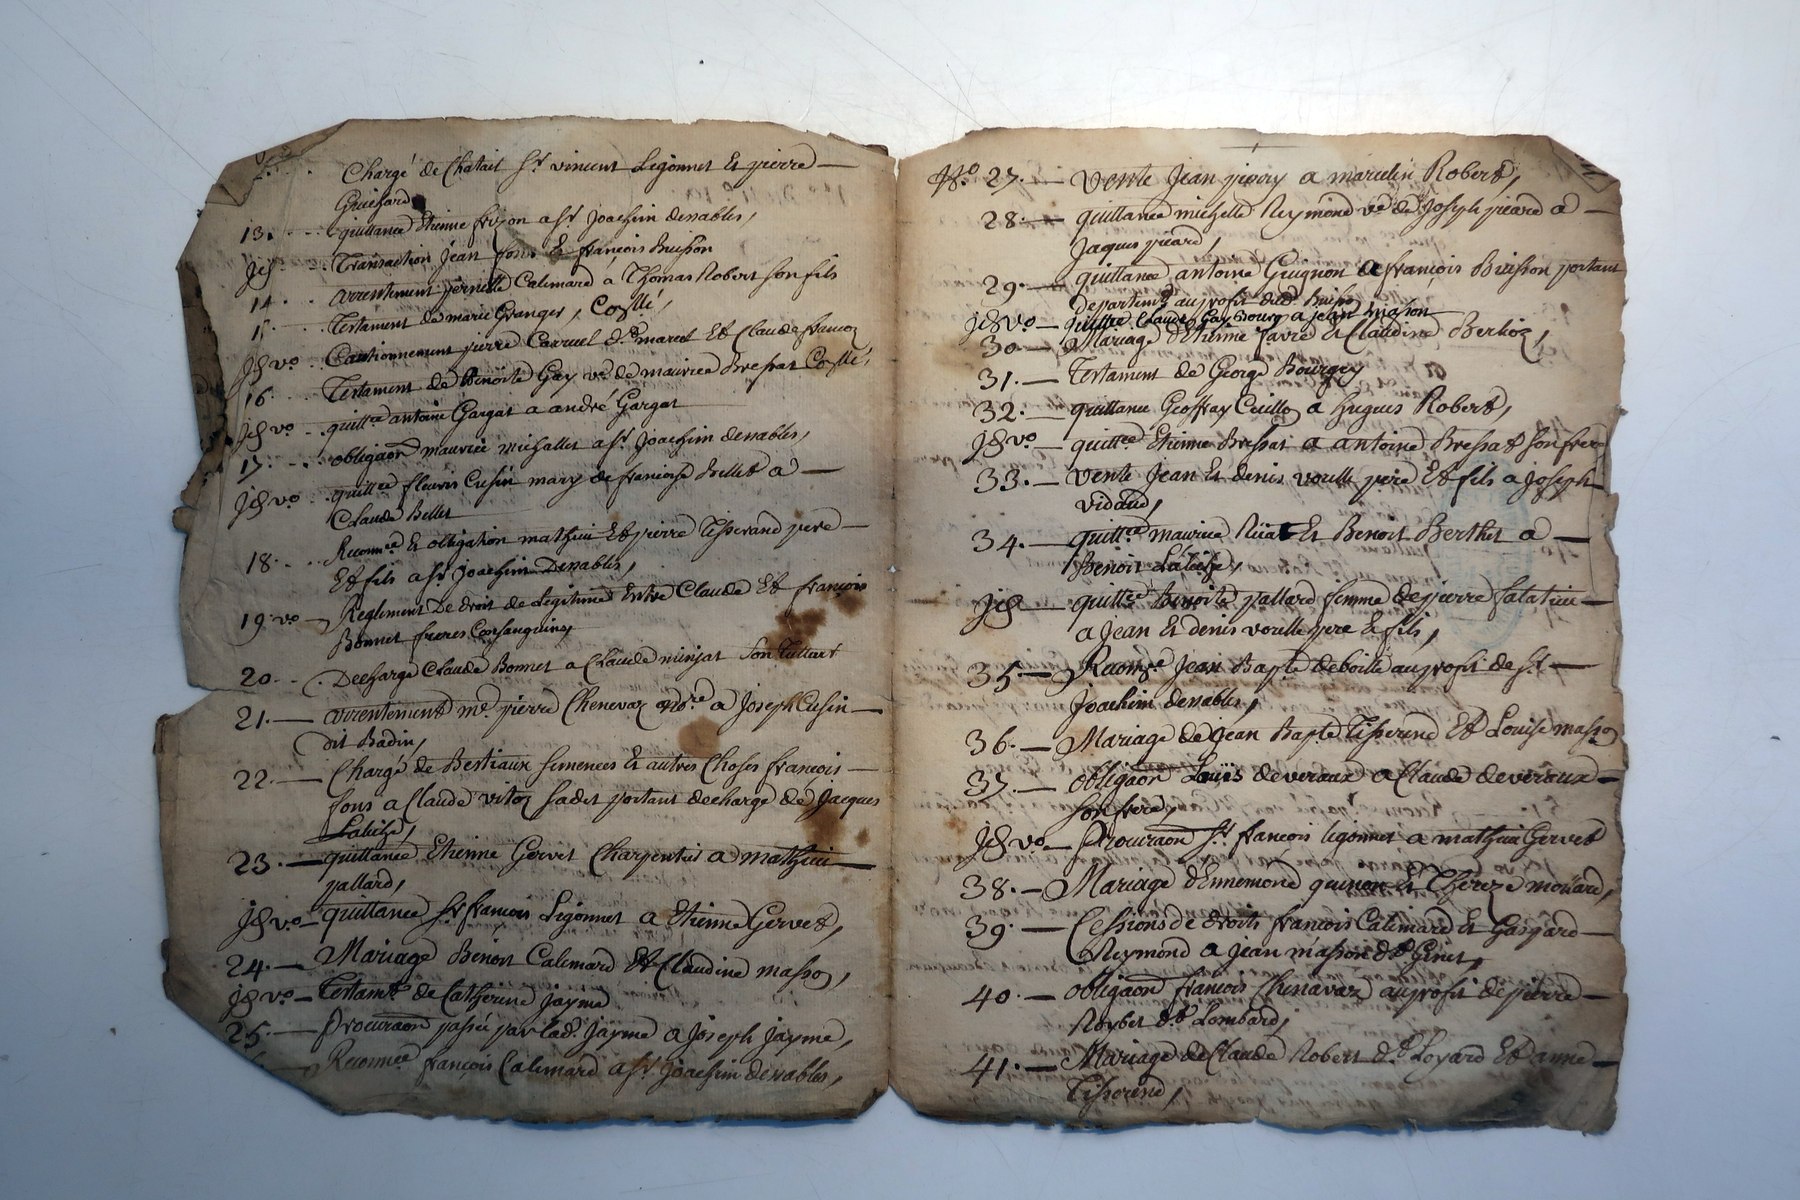 Chargé de Chatail Sr. vincent Legonnet Et pierre —
Guichard
13. quittance Etienne frizon a Sr. Joachim denables,
Transaction Jean fons Et françois Buisson
14. arrentement pernette Calemard a Thomas Robert son fils
Testament de marie Granger, Collé,
Cautionnement pierre Carruel dt. maret Et Claude francoz
16. Testament de Benoite Gay ve. de maurice Bressat Collé,
quittce antoine Gargat a andré Gargat
17. obligaon maurice michallet a Sr. Joachim denables,
quittce fleuris Cusin mary de françoise Bellet a —
Claude Bellet
18. Reconnce Et obligation mathieu Et pierre Tisserand pere —
Et fils a Sr. Joachim Denables,
19. vo — Reglement De droit de Legitime Entre Claude Et françois
Bonnet freres Consanguins
20. Decharge Claude Bonnet a Claude minjat Son
21. — arrentement me. pierre Chenevaz nore a Joseph Cusin —
dit Badin,
22. — Chargé de Bestiaux semences Et autres Choses françois —
fons a Claude vitoz Sadet portant decharge de Jacques
23. — quittance Etienne Gervet Charpentier a mathieu —
pallard,
vo — quittance Sr. françois Legonnet a Etienne Gervet,
24. — Mariage Benoit Calemard Et Claudine masson,
vo — Testamt de Catherine jayme
25. — Procuraon passée par lad. jayme a Joseph jayme,
— Reconnce françois Calemard a Sr. Joachim denables,
27. — Vente Jean pivory a marcelin Robert,
28. — quittance michelle Reymond ve. de Joseph picard a —
Jaques picard,
29. — quittance antoine Guignon a françois Buisson portant
departemt. au profit dud. Buisson
vo — quittce Claude Gay Bourg a jean masson
30. — Mariage d'Etienne favre Et Claudine Berlioz,
31. — Testament de George Bourgey
32. — quittance Geoffray Cuilloz a hugues Robert,
vo — quittce Etienne Bressat a antoine Bressat son frere
33. — Vente Jean Et denis voulle pere Et fils a Joseph —
vidaud,
34. — quittce maurice Et Benoit Berthet a —
Benoit
— quittce Benoite pallard femme de pierre —
a Jean Et denis voulle pere Et fils,
35. — Jean Bapte deboille au profit de Sr. —
Joachim denables,
36. — Mariage de jean Bapte Tisserend Et Louise masson
37. — obligaon Louis deveraux a Claude deveraux —
son frere,
vo — Procuraon Sr. françois legonnet a mathieu Gervet
38. — Mariage d'Ennemond quinon Et Thereze moüard,
39. — Cessions de droits françois Calemard Et Gaspard —
Reymond a jean masson dt Ginet,
40. — obligaon françois Chenavaz au profit de pierre —
Roybet dt Lombard,
41. — Mariage de Claude Robert dt Loyard Et anne —
Tisserend,